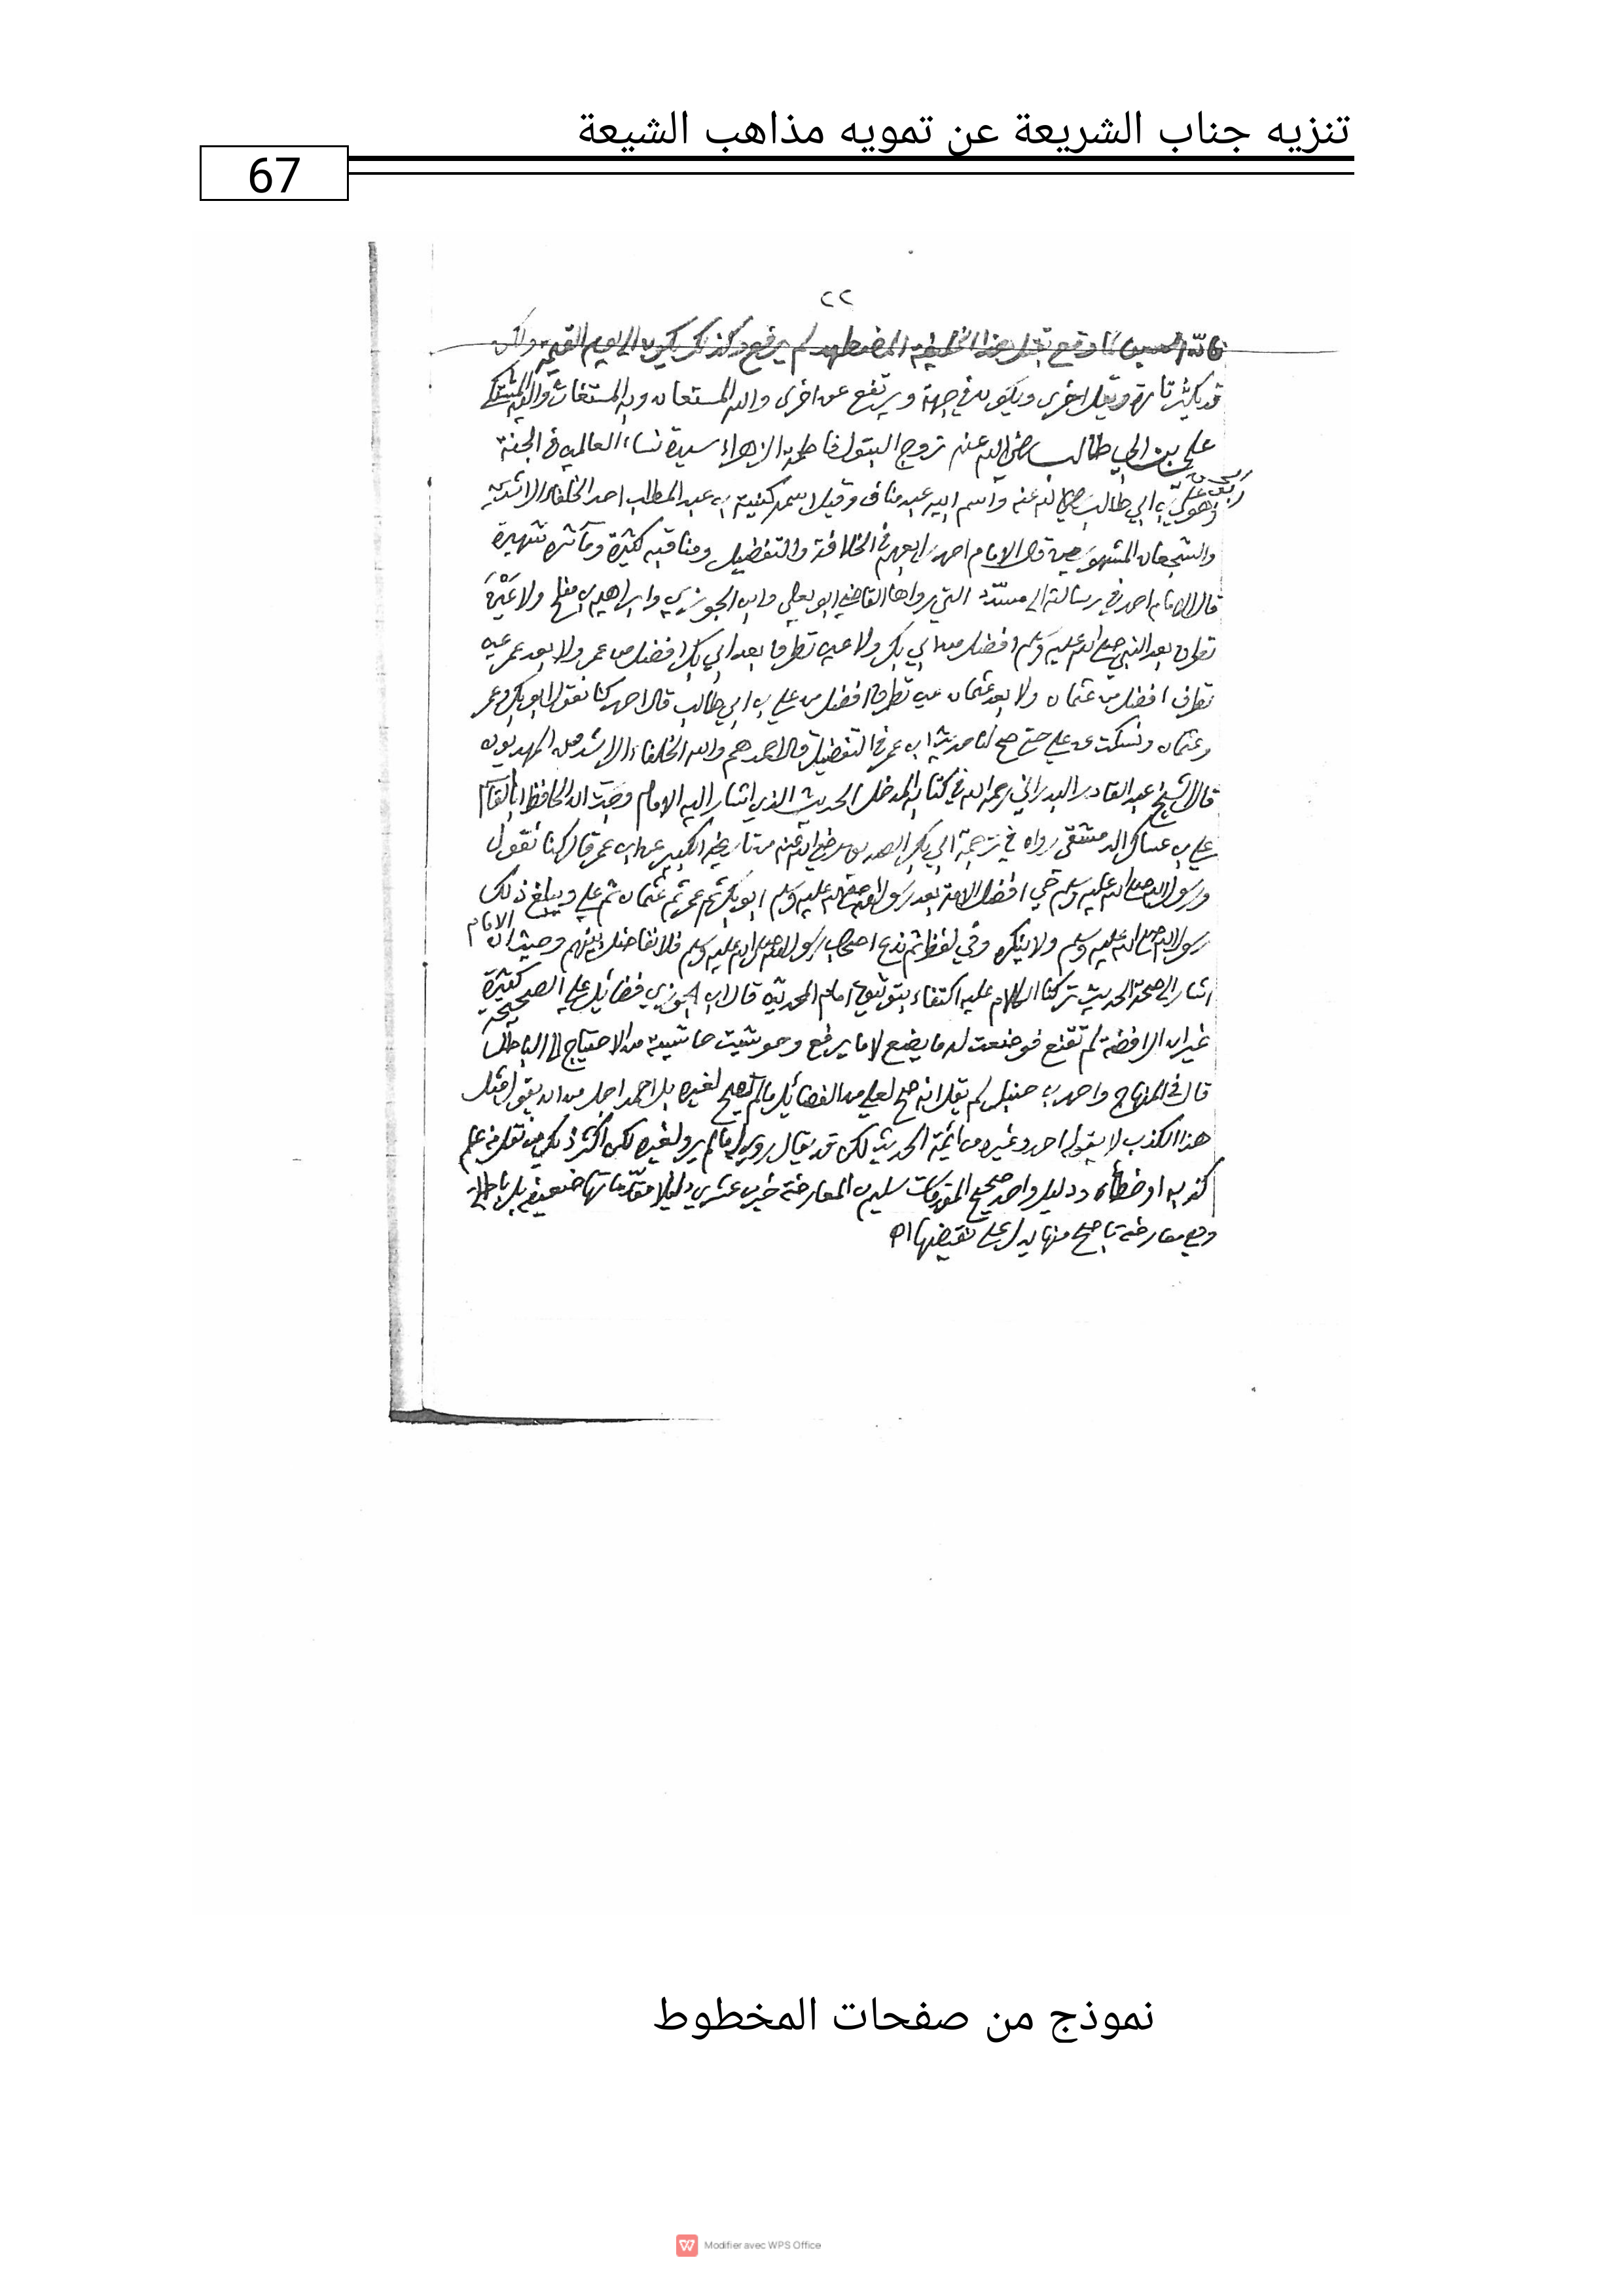 تنزيه جناب الشريعة عن تمويه مذاهب الشيعة
67
٢٢
قد يكثر تارة ويقل اخرى ويكون في جهة ويرتفع عن اخرى والله المستعان وبه المستغاث واليه المشتكى
علي بن ابي طالب رضي الله عنه زوج البتول فاطمة الزهراء سيدة نساء العالمين في الجنة
ابي طالب رضي الله عنه واسم ابيه عبد مناف وقيل اسمه كنيته بن عبد المطلب احد الخلفاء الراشدين
والشجعان المشهورين قال الامام احمد رابعهم في الخلافة والتفضيل ومناقبه كثيرة ومآثره شهيرة
قال الامام احمد في رسالته الى مسدّد التي رواها القاضي ابو يعلى وابن الجوزي وابراهيم بن مفلح ولا عَيْن
تطرف بعد النبي صلى الله عليه وسلم افضل من ابي بكر ولا عين تطرف بعد ابي بكر افضل من عمر ولا بعد عمر عين
تطرف افضل من عثمان ولا بعد عثمان عين تطرف افضل من علي بن ابي طالب قال احمد كنا نقول ابو بكر وعمر
وعثمان ونسكت عن علي حتى صح لنا حديث ابن عمر في التفضيل قال احمد هم والله الخلفاء الراشدون المهديون
قال الشيخ عبد القادر البدراني رحمه الله في كتابه المدخل الحديث الذي اشار اليه الامام وجدت ان الحافظ ابا القاسم
علي بن عساكر الدمشقي رواه في ترجمة ابي بكر الصديق رضي الله عنه من تاريخه الكبير عن ابن عمر قال كنا نقول
ورسول الله صلى الله عليه وسلم حي افضل الامة بعد رسول الله صلى الله عليه وسلم ابو بكر ثم عمر ثم عثمان ثم علي ويبلغ ذلك
رسول الله صلى الله عليه وسلم ولا ينكره وفي لفظ ثم ندع اصحاب رسول الله صلى الله عليه وسلم فلا نفاضل بينهم وحيث ان الامام
اشار الى صحة الحديث تركنا الكلام عليه اكتفاء بتوثيق امام المحدثين قال ابن الجوزي فضائل علي الصحيحة كثيرة
غير ان الرافضة لم تقنع فوضعت له ما يضع لا ما يرفع وحوشيت حاشيته من الاحتياج الى الباطل
قال في المنهاج واحمد بن حنبل لم يقل انه صح لعلي من الفضائل ما لم يصح لغيره بل احمد اجل من ان يقول مثل
هذا الكذب لا يقوله احمد وغيره من ائمة الحديث لكن قد يقال روي له ما لم يرو لغيره لكن اكثر ذلك من نقل من علم
كذبه او خطأه ودليل واحد صحيح المقدمات سليم من المعارضة خير من عشرين دليلا مقدّماتها ضعيفة بل باطلة
وهي معارضة بأصح منها يدل على نقيضها اهـ
نموذج من صفحات المخطوط
Modifier avec WPS Office